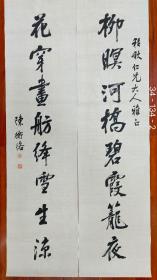 柳暝河橋碧霞籠夜
仁兄大人雅正
花穿畫舫絳雪生涼
陳衡恪
34-134-2